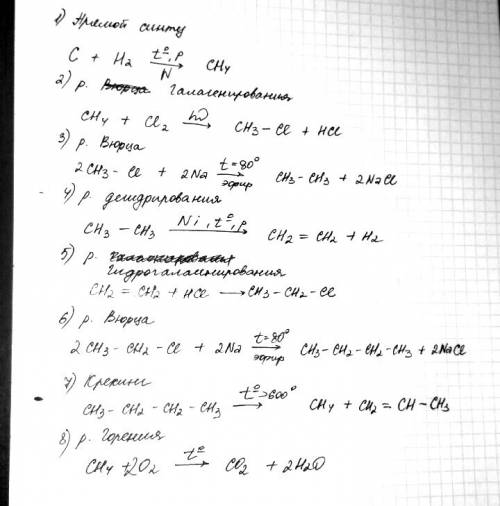 1) Прямой синтез
C + H2 t°,p → N CH4
2) р. Вюрца Галагенирования
CH4 + Cl2 hν → CH3-Cl + HCl
3) р. Вюрца
2CH3-Cl + 2Na t=80° → эфир CH3-CH3 + 2NaCl
4) р. дегидрирования
CH3-CH3 Ni, t°, p → CH2=CH2 + H2
5) р.
Гидрогалагенирования
CH2=CH2 + HCl → CH3-CH2-Cl
6) р. Вюрца
2CH3-CH2-Cl + 2Na t=80° → эфир CH3-CH2-CH2-CH3 + 2NaCl
7) Крекинг
CH3-CH2-CH2-CH3 t°>600° → CH4 + CH2=CH-CH3
8) р. Горения
CH4 + 2O2 t° → CO2 + 2H2O